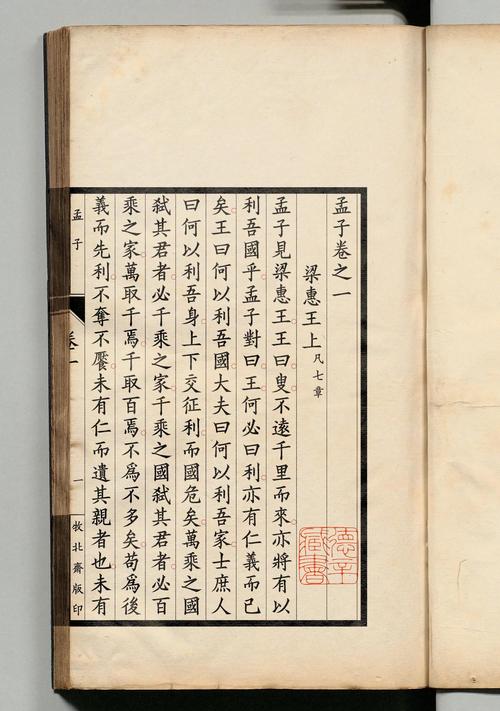 孟子卷之一
梁惠王上 凡七章
孟子見梁惠王王曰叟不遠千里而來亦將有以
利吾國乎孟子對曰王何必曰利亦有仁義而已
矣王曰何以利吾國大夫曰何以利吾家士庶人
曰何以利吾身上下交征利而國危矣萬乘之國
弑其君者必千乘之家千乘之國弑其君者必百
乘之家萬取千焉千取百焉不爲不多矣苟爲後
義而先利不奪不饜未有仁而遺其親者也未有
孟子
卷一
一
牧北齋版印
藏書